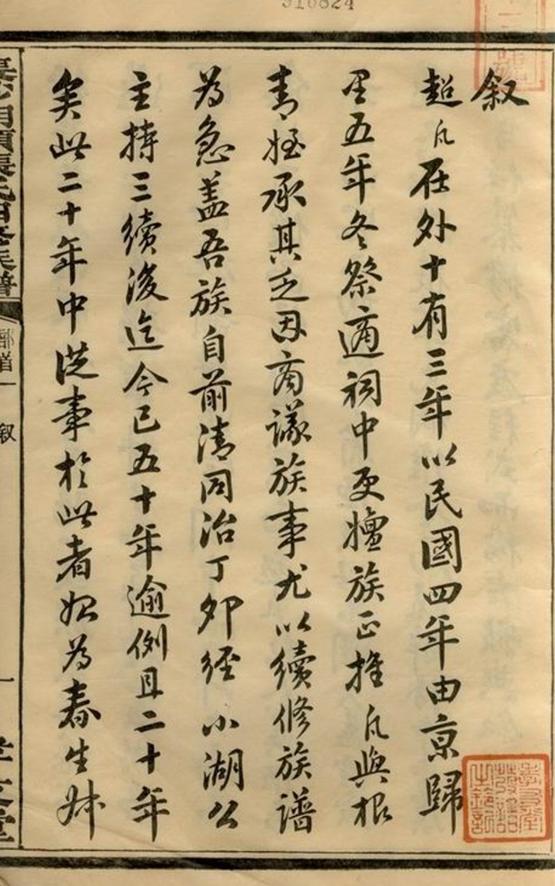 叙
超凡在外十有三年以民國四年由京歸
里五年冬祭適祠中更壇族正推凡與根
青姪承其乏因商議族事尤以續修族譜
為急蓋吾族自前清同治丁卯經小湖公
主持三續後迄今已五十年逾例且二十年
矣此二十年中從事於此者如為春生
族譜
叙
一
910824